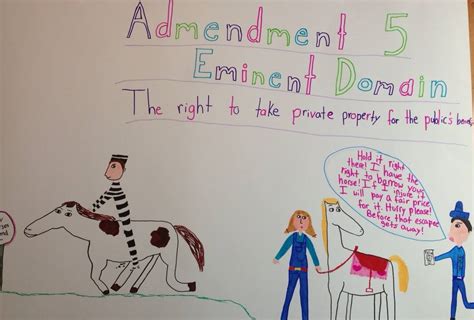 Admendment 5
Eminent Domain
The right to take private property for the public's
Hold it right
there! I have the
right to borrow your
horse! If I injure it
I will pay a fair price
for it. Hurry please!
Before that escapee
gets away!